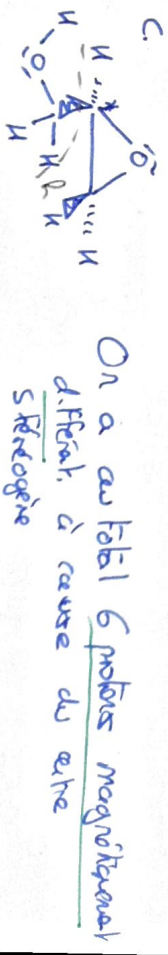 C.
H
H
O
O
H
H
R
H
H
On a au total 6 protons magnétiquement
différent. à cause du centre
stéréogène